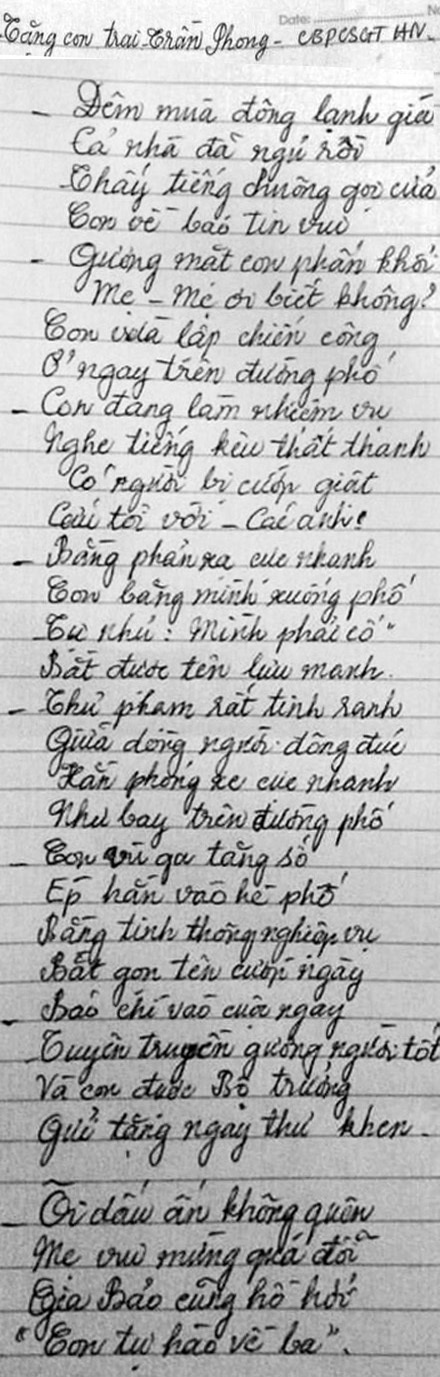 Date:
No
Tặng con trai - Trần Phong - CBPCSGT HN.
- Đêm mùa đông lạnh giá
Cả nhà đã ngủ rồi
Thấy tiếng chuông gọi cửa
Con về báo tin vui
- Gương mặt con phấn khởi
Mẹ - Mẹ ơi biết không?
Con vừa lập chiến công
Ở ngay trên đường phố
- Con đang làm nhiệm vụ
Nghe tiếng kêu thất thanh
Có người bị cướp giật
Cứu tôi với - Các anh!
- Bằng phản xạ cực nhanh
Con băng mình xuống phố
Tự nhủ: Mình phải cố"
Bắt được tên lưu manh.
- Thủ phạm rất tinh ranh
Giữa dòng người đông đúc
Hắn phóng xe cực nhanh
Như bay trên đường phố
- Con vù ga tăng số
Ép hắn vào hè phố
Bằng tinh thông nghiệp vụ
Bắt gọn tên cướp ngày
- Báo chí vào cuộc ngay
Tuyên truyền gương người tốt
Và con được Bộ trưởng
Gửi tặng ngay thư khen.
- Ôi dấu ấn không quên
Mẹ vui mừng quá đỗi
Gia Bảo cũng hồ hởi
"Con tự hào về ba".